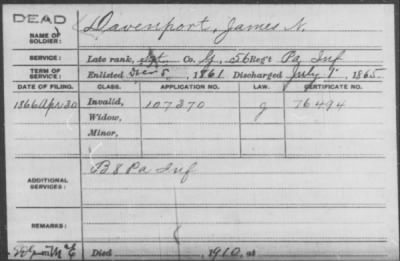 DEAD
NAME OF SOLDIER: Davenport, James N.
SERVICE: Late rank, Sgt. Co. G, 56 Regt Pa Inf
TERM OF SERVICE: Enlisted 5, 1861. Discharged July 1, 1865.
DATE OF FILING. CLASS. APPLICATION NO. LAW. CERTIFICATE NO.
1866 Apr 30 Invalid, 107370 G 76494
Widow,
Minor,
ADDITIONAL SERVICES: B 8 Pa Inf
REMARKS:
Died 1910, at